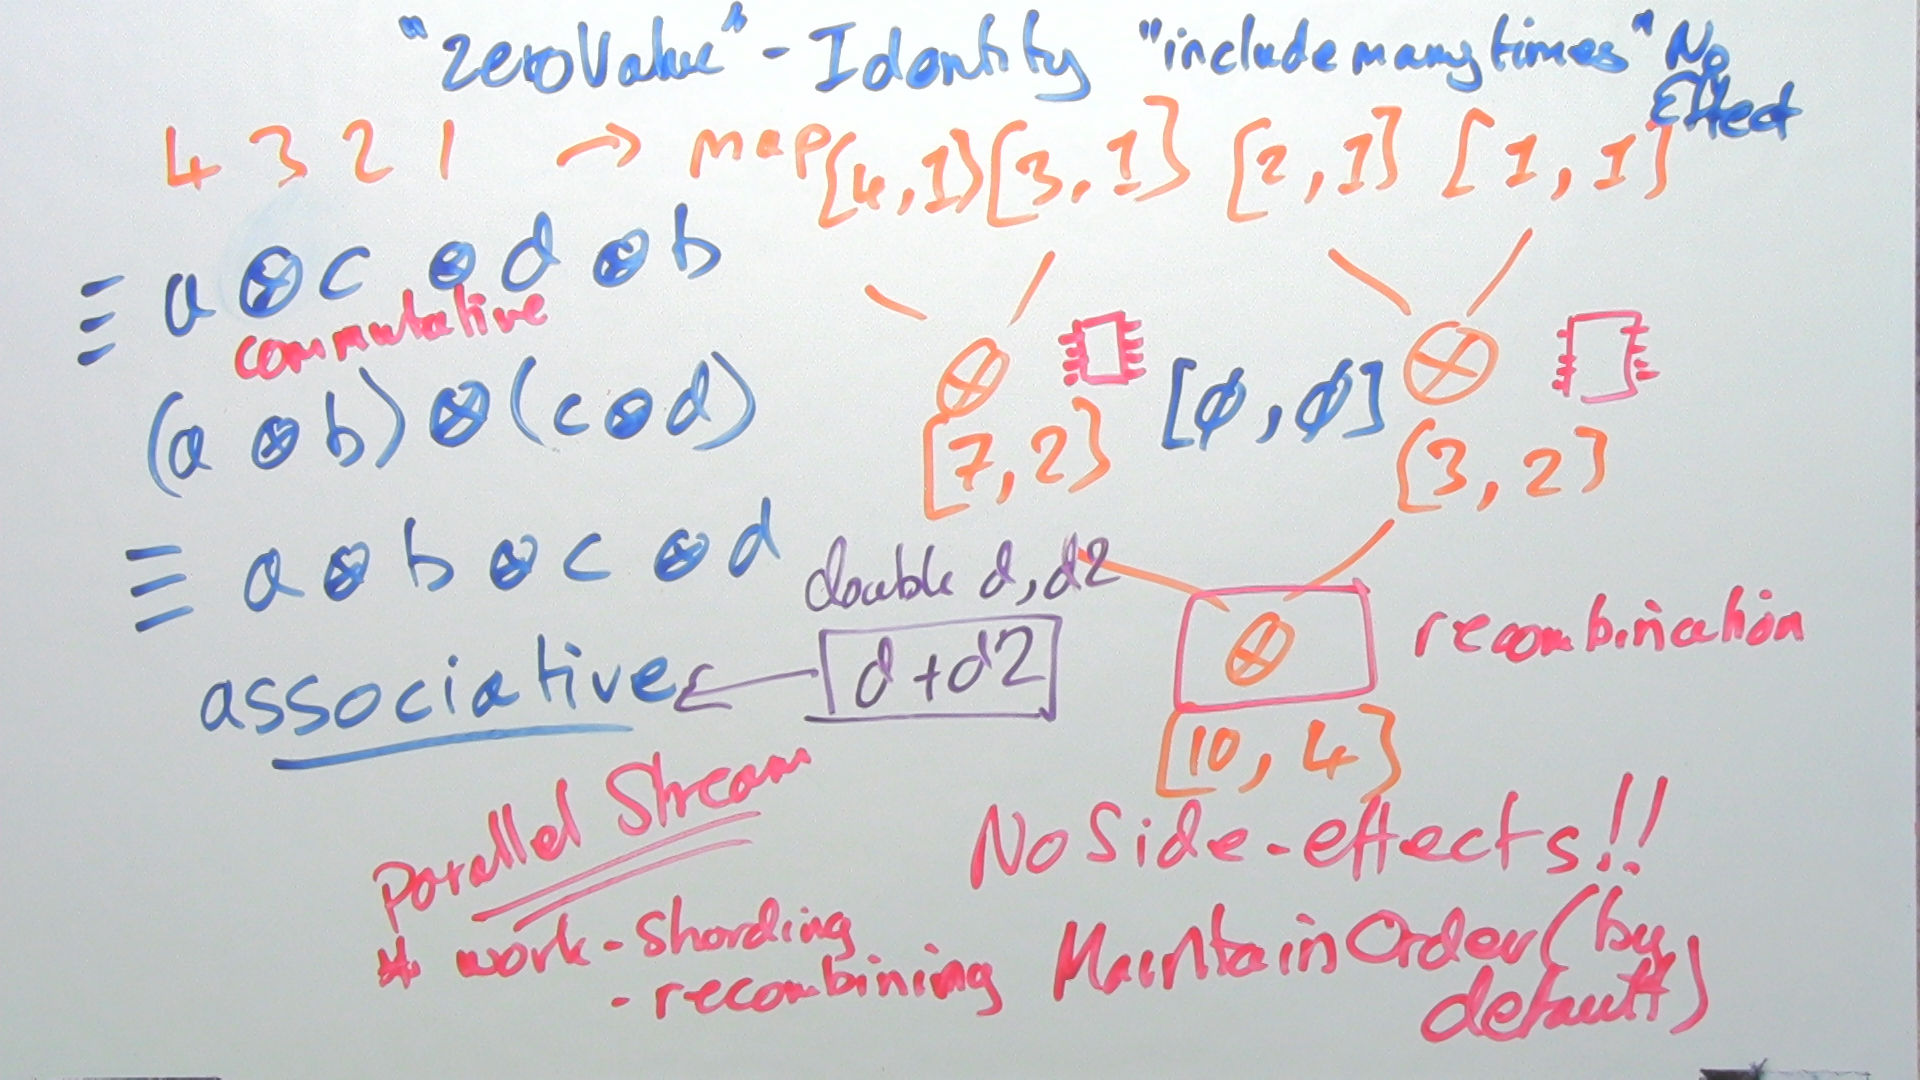 "zeroValue" - Identity "include many times" No Effect
4 3 2 1 → map [4,1] [3,1] [2,1] [1,1]
≡ a ⊗ c ⊗ d ⊗ b
commutative
(a ⊗ b) ⊗ (c ⊗ d)
⊗ ⊗
[7,2] [ø,ø] [3,2]
≡ a ⊗ b ⊗ c ⊗ d
double d, d2
d+d2
associative ←
⊗ recombination
[10, 4]
Parallel Stream
* work - sharding
- recombining
No Side-effects!!
Maintain Order (by default)